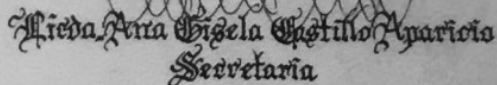 Licda. Ana Gisela Castillo Aparicio
Secretaria